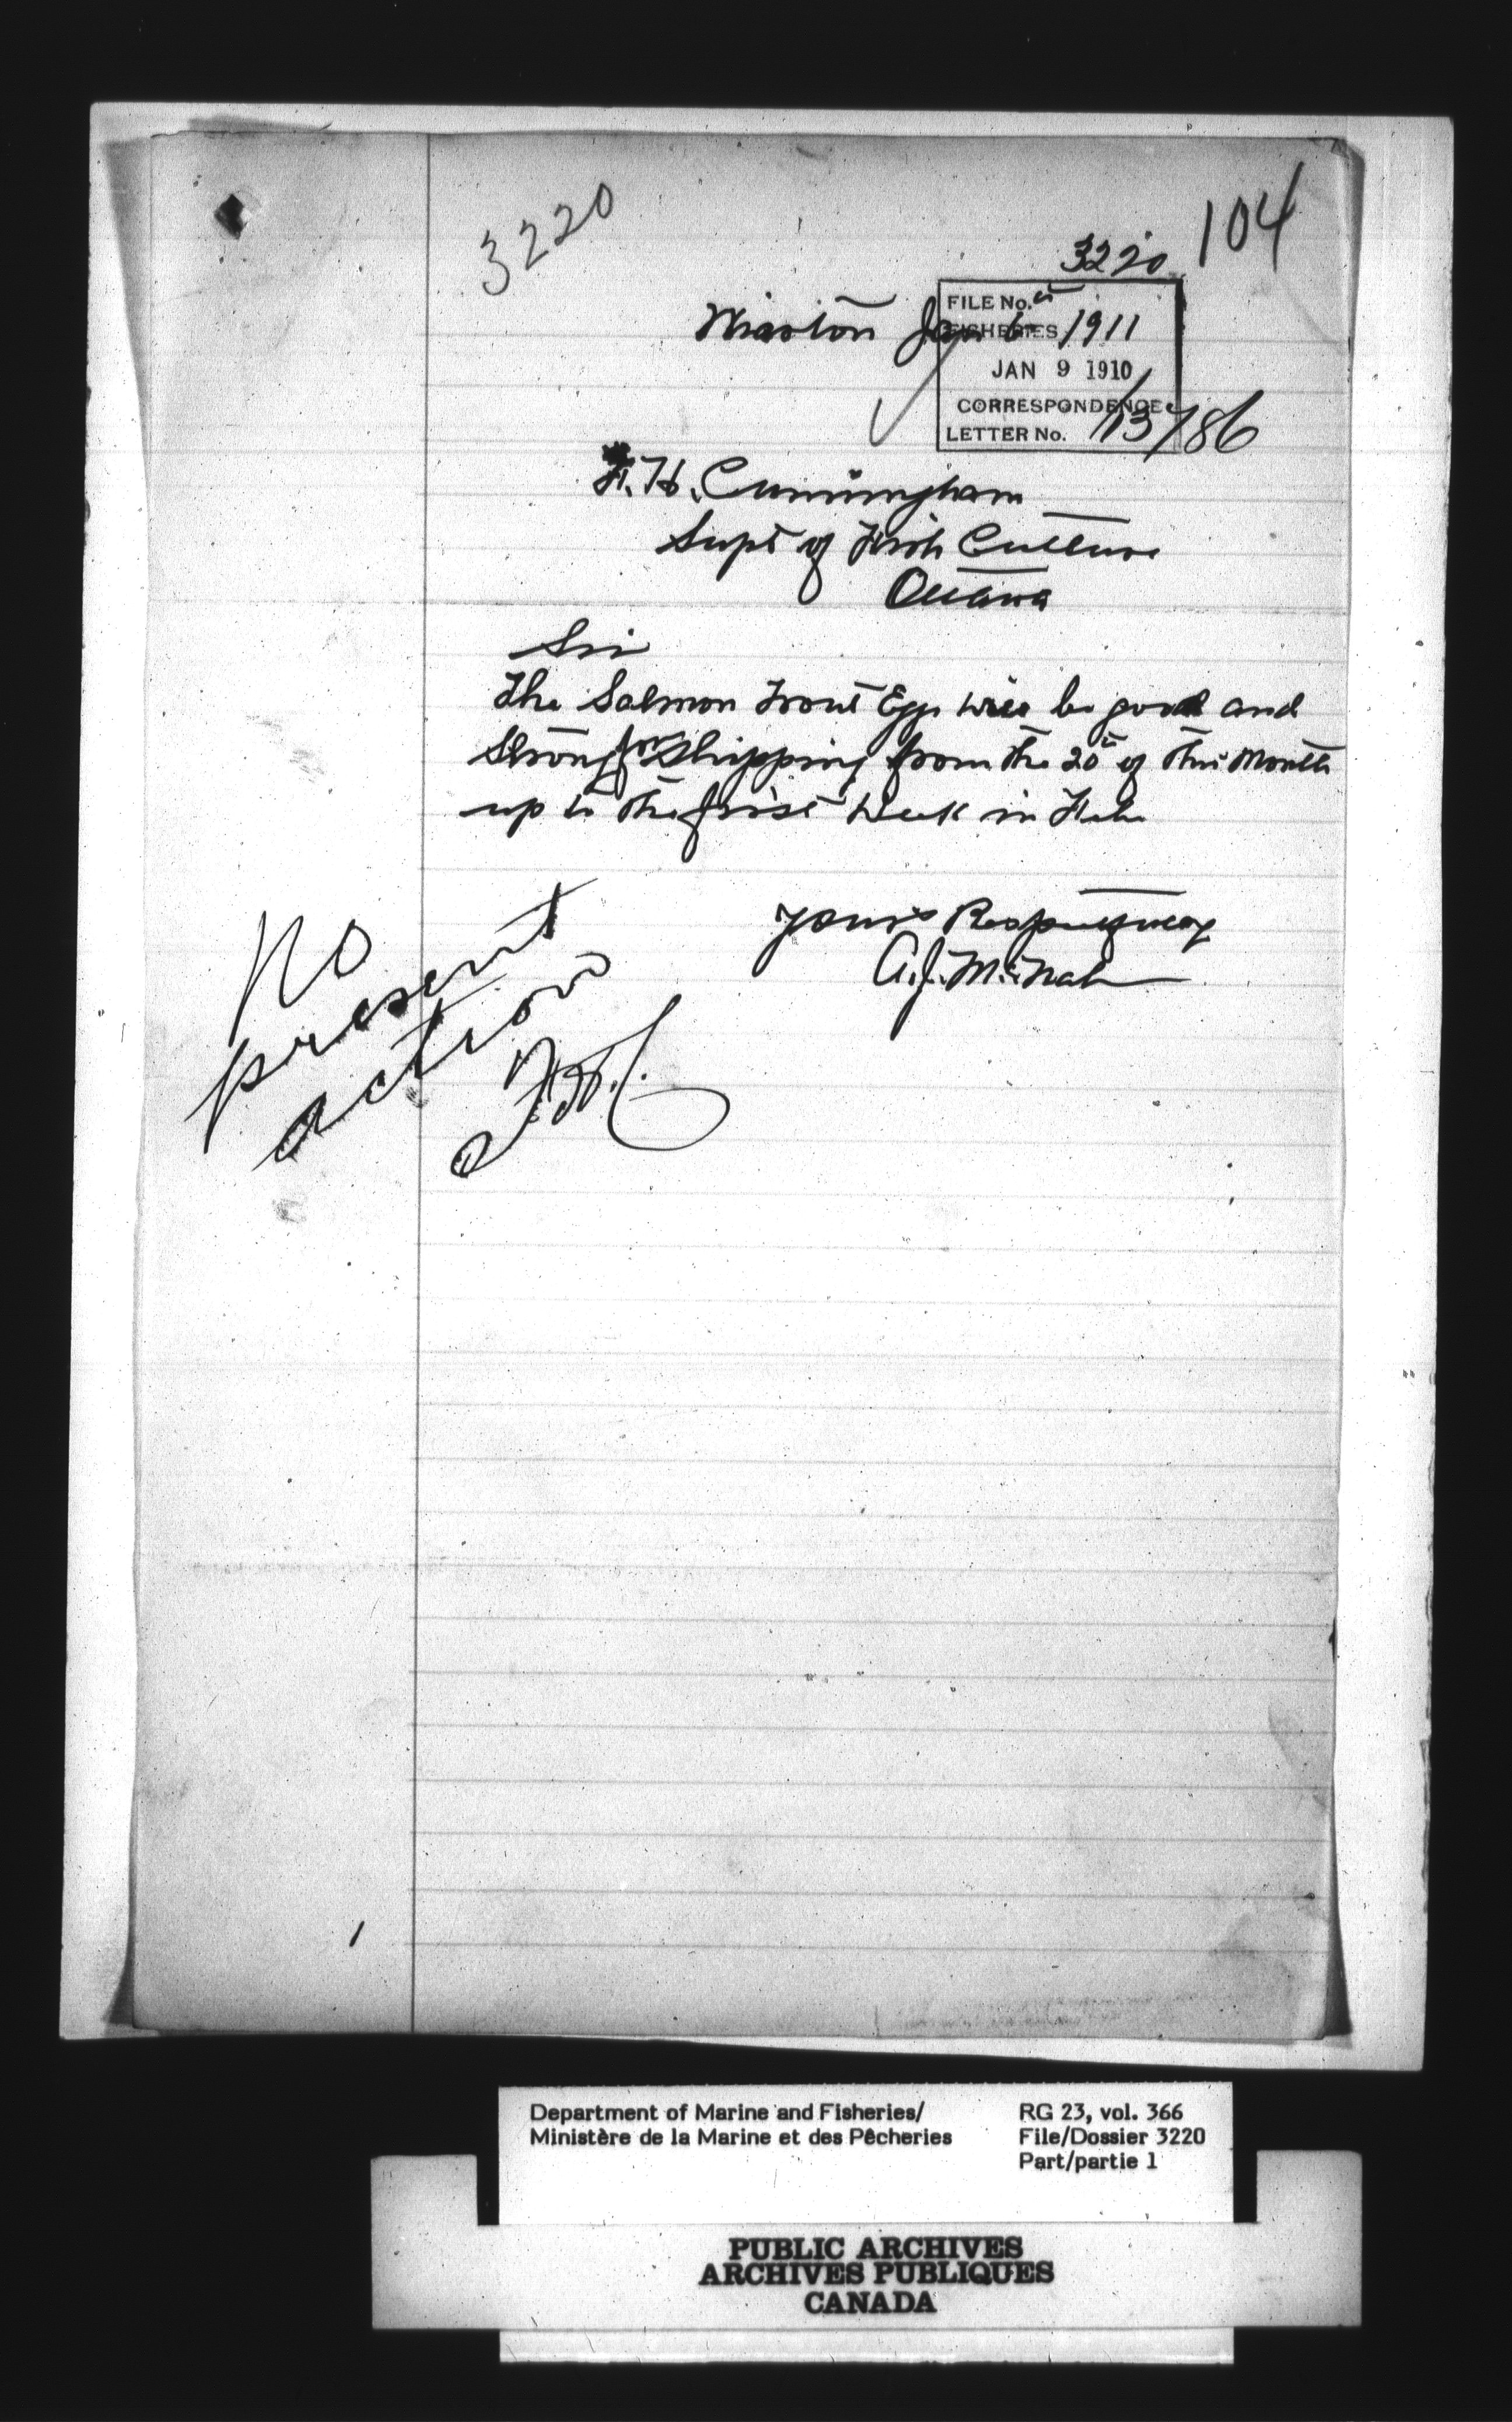 3220
104
3220
FILE No.
Wiarton Jan 6 1911
FISHERIES
JAN 9 1910
CORRESPONDENCE
LETTER No. 13786
F. H. Cunningham
Supt of Fish Culture
Ottawa
Sir
The Salmon Trout Eggs will be good and
Strong for Shipping from the 20th of this Month
up to the first Week in Feb
Yours Respectfully
A.J. McNab
No
present
action
F.H.C.
Department of Marine and Fisheries/
Ministère de la Marine et des Pêcheries
RG 23, vol. 366
File/Dossier 3220
Part/partie 1
PUBLIC ARCHIVES
ARCHIVES PUBLIQUES
CANADA